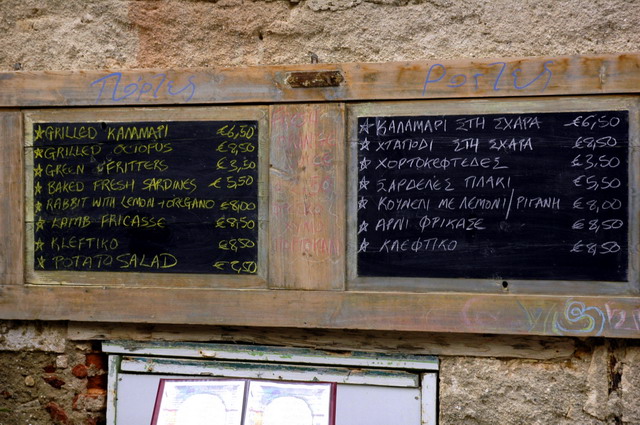 Πόρτες
★GRILLED KAΛAMAPI €6,50
★GRILLED OCTOPUS €8,50
★GREEN FRITTERS €3,50
★BAKED FRESH SARDINES €5,50
★RABBIT WITH LEMON+OREGANO €8,00
★LAMB FRICASSE €8,50
★KLEFTIKO €8,50
★POTATO SALAD
★ΚΑΛΑΜΑΡΙ ΣΤΗ ΣΧΑΡΑ €6,50
★ΧΤΑΠΟΔΙ ΣΤΗ ΣΧΑΡΑ €8,50
★ΧΟΡΤΟΚΕΦΤΕΔΕΣ €3,50
★ΣΑΡΔΕΛΕΣ ΠΛΑΚΙ €5,50
★ΚΟΥΝΕΛΙ ΜΕ ΛΕΜΟΝΙ/ΡΙΓΑΝΗ €8,00
★ΑΡΝΙ ΦΡΙΚΑΣΕ €8,50
★ΚΛΕΦΤΙΚΟ €8,50